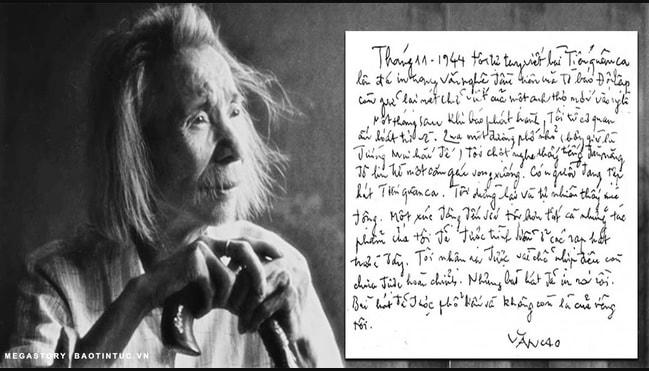 Tháng 11-1944 tôi tự tay viết bài Tiến quân ca
lên đá in trang văn nghệ đầu tiên của tờ báo Độc lập
còn giữ lại nét chữ viết của một anh thợ mới vào nghề
Một tháng sau khi báo phát hành, Tôi từ cơ quan
ấn loát trở về. Qua một đường phố nhỏ (bây giờ là
đường Mai hắc Đế) Tôi chợt nghe thấy tiếng đàn măng
đô lin từ một căn gác vọng xuống. Có người đang tập
hát Tiến quân ca. Tôi dừng lại và tự nhiên thấy xúc
động. Một xúc động đến với tôi hơn tất cả những tác
phẩm của tôi đã được trình diễn ở các rạp hát
trước đây. Tôi nhận ra được vài chỗ nhịp điệu còn
chưa được hoàn chỉnh. Nhưng bài hát đã in ra rồi.
Bài hát đã được phổ biến và không còn là của riêng
tôi.
VĂN CAO
MEGASTORY | BAOTINTUC.VN